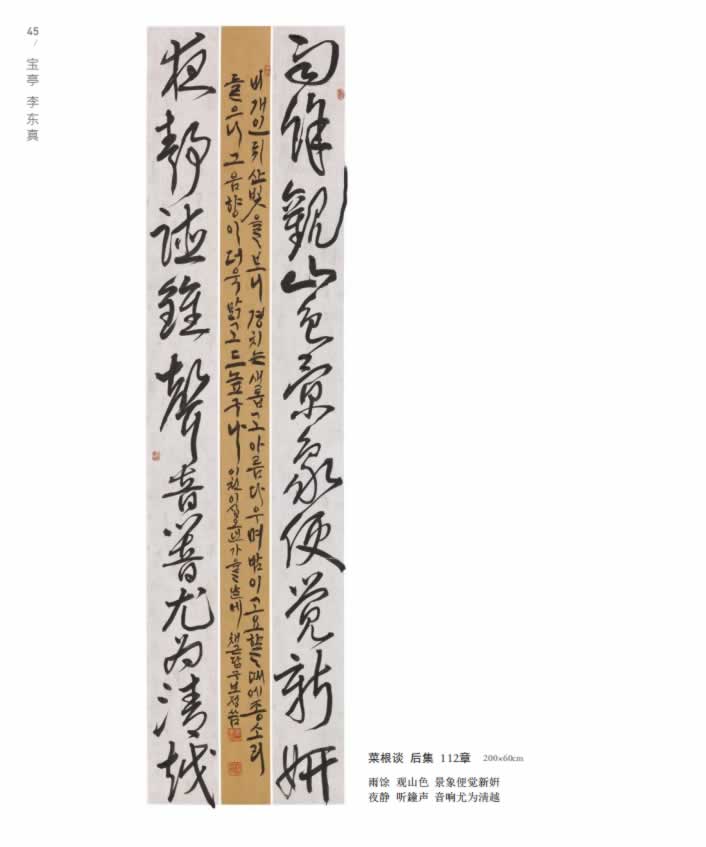 45
/
宝亭 李东真
雨餘觀山色景象便覺新妍
비 개인 뒤 산빛을 보니 경치는 새롭고 아름다우며 밤이 고요할 때에 종소리
들으니 그 음향이 더욱 맑고 드높구나 이천이십오년 가을 채근담구 보정 씀
夜靜聽鐘聲音響尤为清越
菜根谈 后集 112章 200×60cm
雨馀 观山色 景象便觉新妍
夜静 听鐘声 音响尤为清越